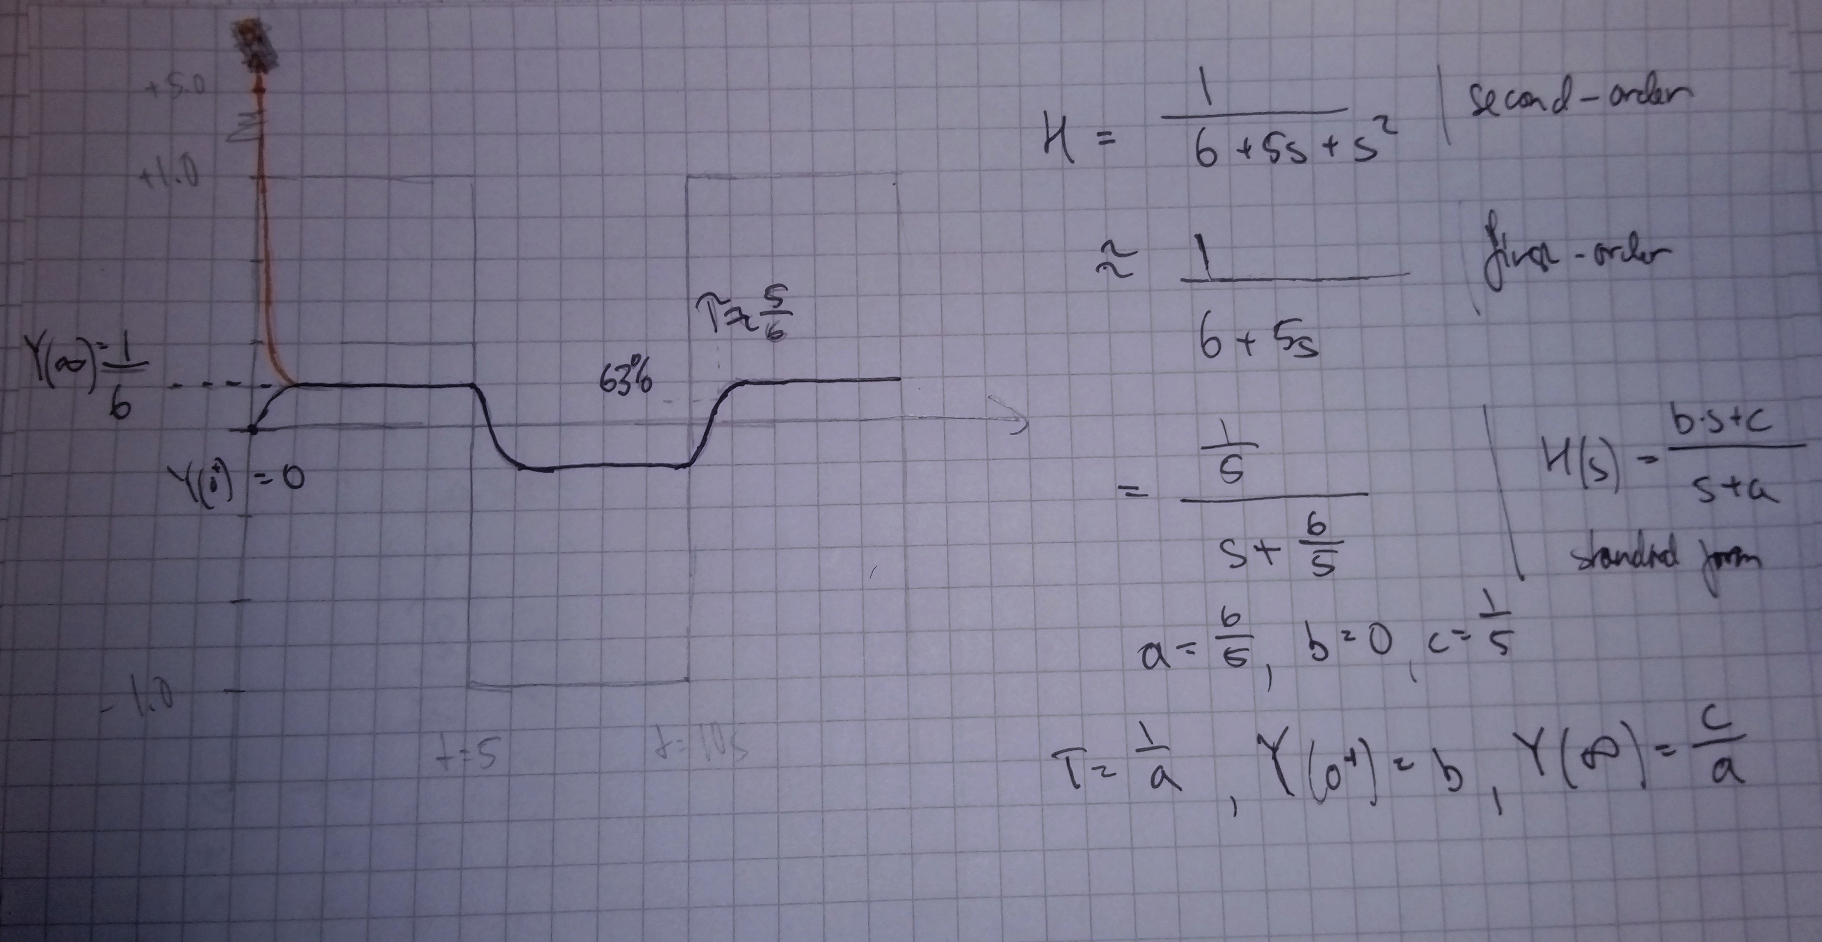 +5.0
+1.0
Y(∞) = 1/6
Y(0⁺) = 0
63%
T ≈ 5/6
-1.0
t=5
t=10s
H = 1/(6 + 5s + s²) | second-order
≈ 1/(6 + 5s) | first-order
= (1/5)/(s + 6/5) | H(s) = (b·s+c)/(s+a)
standard form
a = 6/5, b = 0, c = 1/5
T = 1/a, Y(0⁺) = b, Y(∞) = c/a